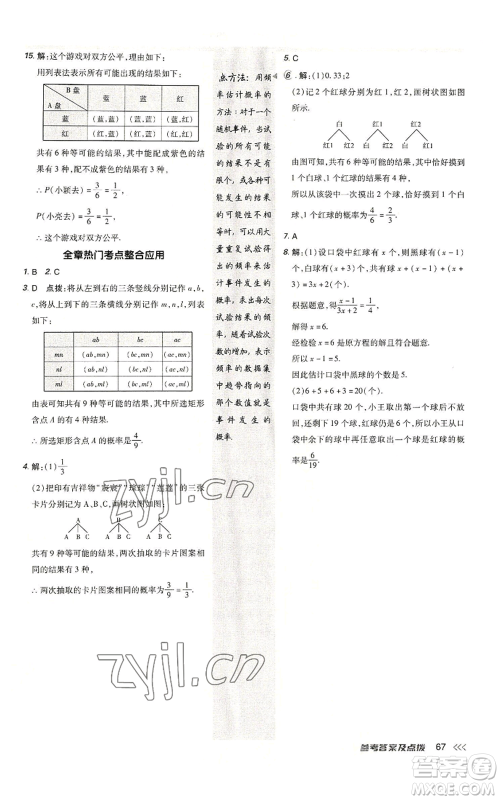 15. 解:这个游戏对双方公平,理由如下:
用列表法表示所有可能出现的结果如下:
B 盘
A 盘
蓝 蓝 红
蓝 (蓝,蓝) (蓝,蓝) (蓝,红)
红 (红,蓝) (红,蓝) (红,红)
共有 6 种等可能的结果,配不成紫色的
结果有 3 种,配成紫色的结果有 3 种,
∴ P(小颖去) = 3/6 = 1/2,
P(小亮去) = 3/6 = 1/2.
∴ 这个游戏对双方公平.
全章热门考点整合应用
1. B 2. C
3. D 点拨:将从左到右的三条竖线分别记作 a,b,c,
将从上到下的三条横线分别记作 m,n,l,列表如下:
ab bc ac
mn (ab,mn) (bc,mn) (ac,mn)
nl (ab,nl) (bc,nl) (ac,nl)
ml (ab,ml) (bc,ml) (ac,ml)
由表可知共有 9 种等可能的结果,其中所选矩形
含点 A 的有 4 种结果,
∴ 所选矩形含点 A 的概率是 4/9.
4. 解:(1) 1/3
(2)把印有吉祥物“宸宸”“琮琮”“莲莲”的三张
卡片分别记为 A,B,C,画树状图如图:
A B C
A B C A B C A B C
共有 9 种等可能的结果,两次抽取的卡片图案相
同的结果有 3 种,
∴ 两次抽取的卡片图案相同的概率为 3/9 = 1/3.
点方法:用频
率估计概率的
方法:对于一个
随机事件,当试
验的所有可能
的结果不是有
限个,或各种可
能的结果发生
的可能性不相
等时,可以用大
量重复试验得
出的频率来估
计概率,也就是
说,如果随着试
验结果的频率
次数的增加,试
验结果的频率
集中趋势指向的
那个数值就是
事件发生的概率.
5. C
6. 解:(1)0.33;2
(2)记 2 个红球分别为红1,红2,画树状图如图
所示.
白 红1 红2
红1 红2 白 红2 白 红1
由图可知,共有 6 种等可能的结果,其中摸到 1
个白球,1 个红球的结果有 4 种,
所以从该袋中一次摸出 2 个球,摸出的 2 个球是
1 个白球,1 个红球的概率为 4/6 = 2/3.
7. A
8. 解:(1)设口袋中红球有 x 个,则黑球有(x−1)个,
白球有(x+3)个,口袋中共有(3x+2)个球.
根据题意,得 (x−1)/(3x+2) = 1/4,
解得 x=6.
经检验 x=6 是原方程的解且符合题意.
所以 x−1=5.
因此估计口袋中黑球的个数为 5.
(2)6+5+6+2=19(个).
口袋中共 20 个球,小王在口袋中摸出一个球后
不放回,还剩下 19 个球,其中红球有 6 个,所以小王从口袋
中余下的球中再任意摸出一个球是红球的概率是
6/19.
zyjl.cn
zyjl.cn
参考答案及点拨 67